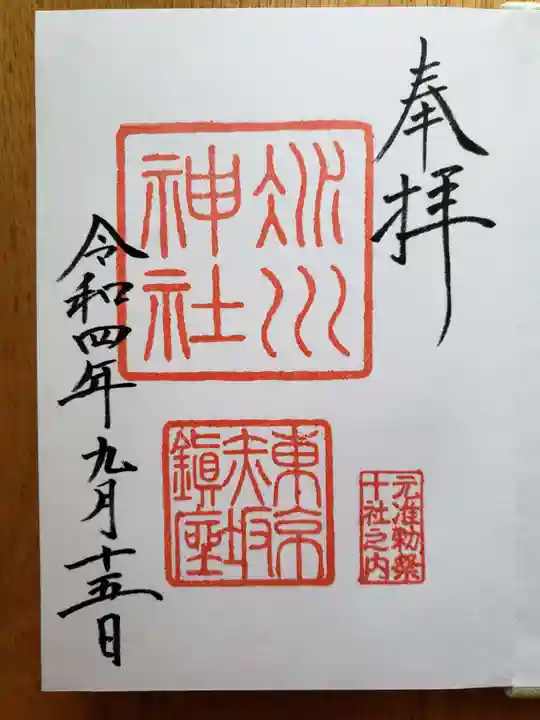 奉拝
氷川
神社
東京
赤坂
鎮座
元准勅祭
十社之内
令和四年九月十五日